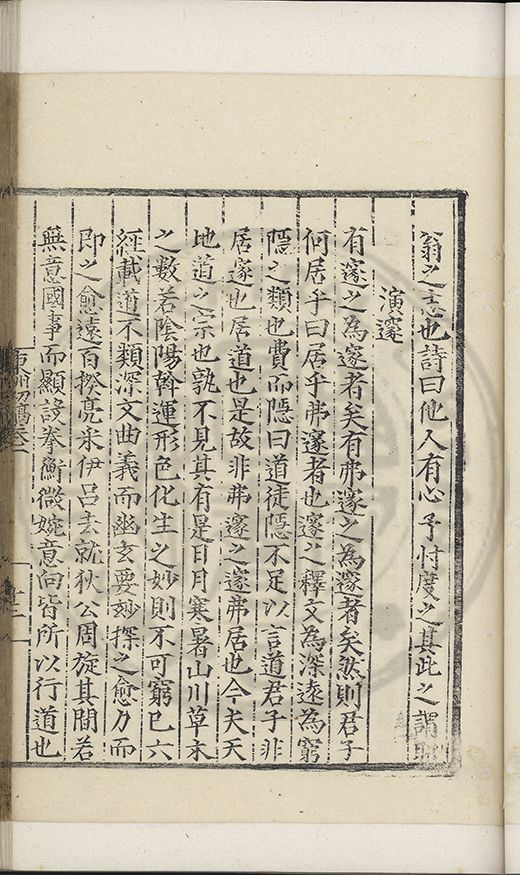 翁之志也詩曰他人有心予忖度之其此之謂
演邃
有邃之為邃者矣有弗邃之為邃者矣然則君子
何居乎曰居乎弗邃者也邃之釋文為深遠為窮
隱之類也費而隱曰道徒隱不足以言道君子非
居邃也居道也是故非弗邃之邃弗居也今夫天
地道之宗也孰不見其有是日月寒暑山川草木
之數若陰陽斡運形色化生之妙則不可窮已六
經載道不類深文曲義而幽玄要妙探之愈力而
即之愈遠百揆亮采伊呂去就狄公周旋其間若
無意國事而顯諼拳衡微婉意向皆所以行道也
初稿卷一
十二